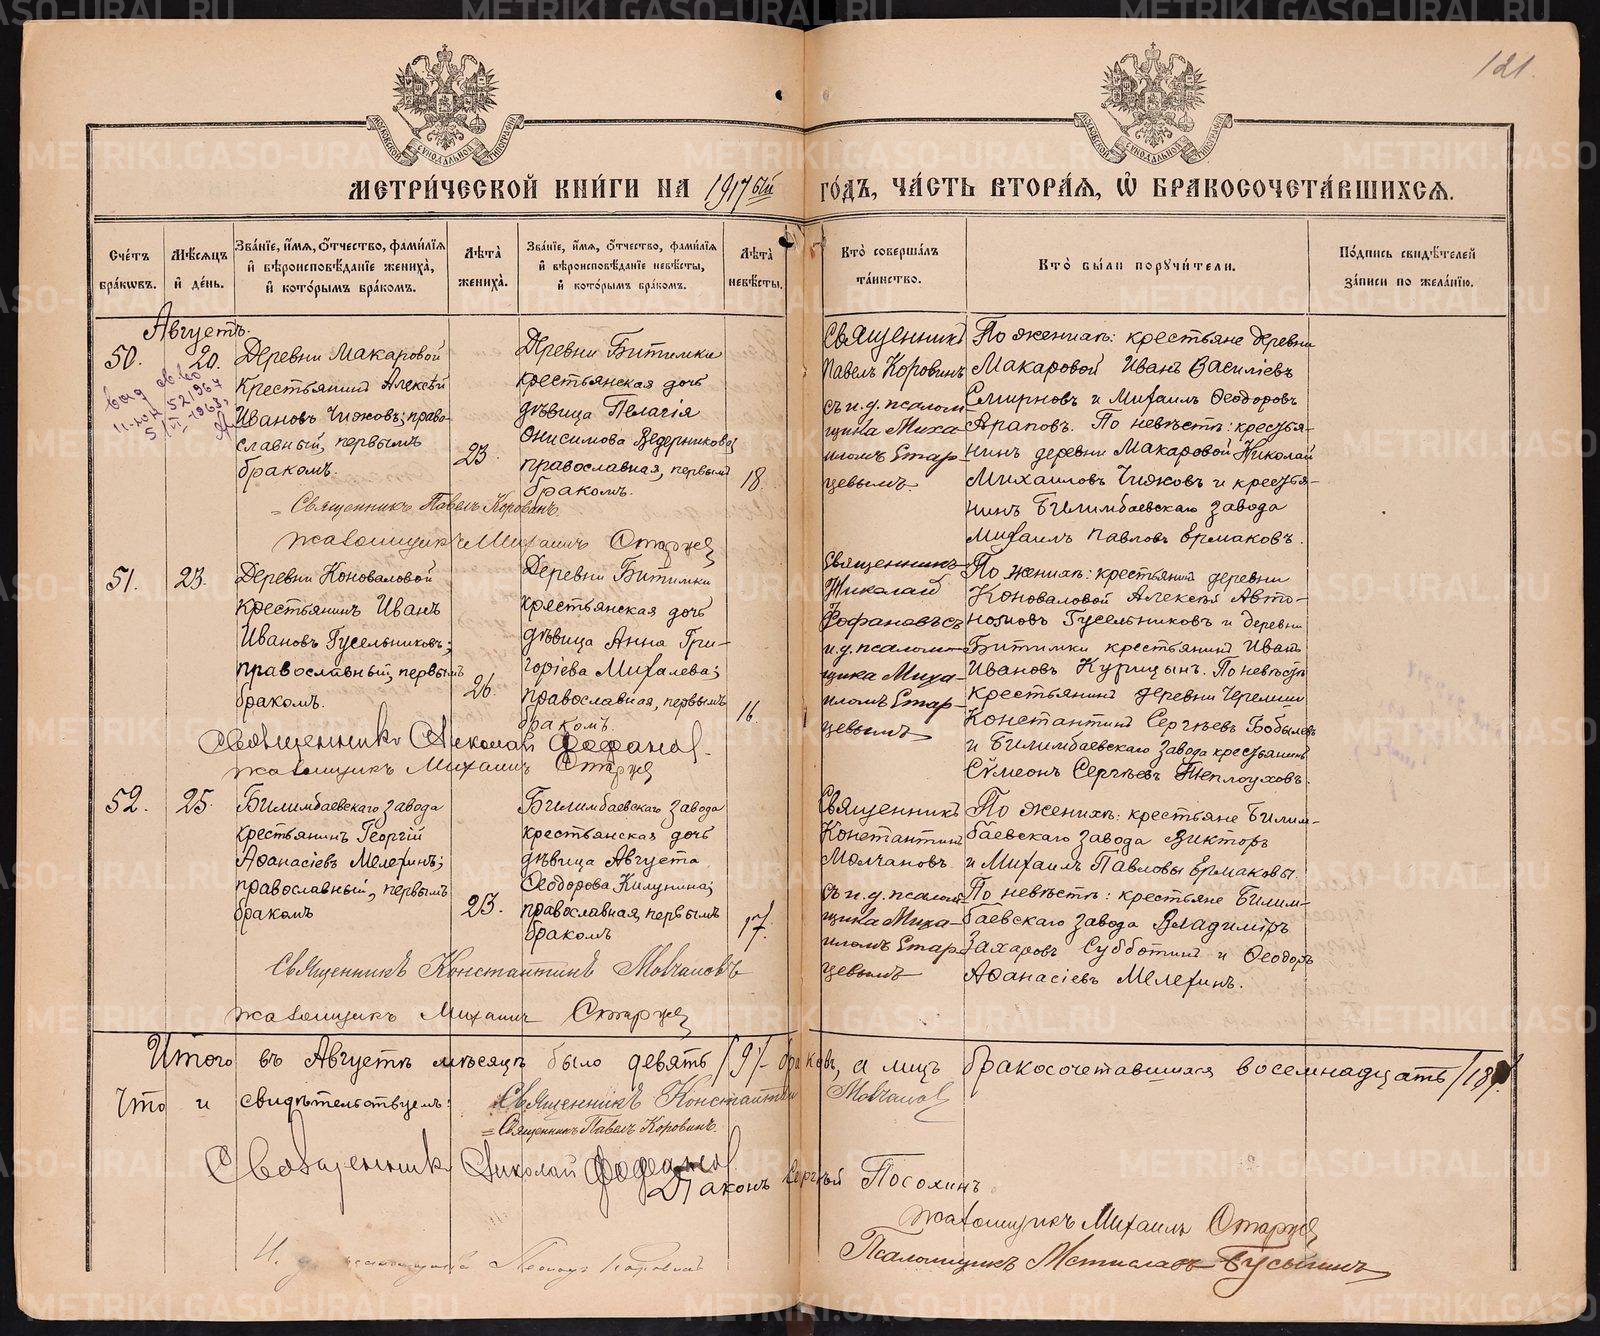 121.
МОСКОВСКОЙ СѴНОДАЛЬНОЙ ТИПОГРАФІИ
МОСКОВСКОЙ СѴНОДАЛЬНОЙ ТИПОГРАФІИ
МЕТРИ́ЧЕСКОЙ КНИ́ГИ НА 1917ый ГО́ДЪ, ЧА́СТЬ ВТОРА́Я, Ѡ҆ БРАКОСОЧЕТА́ВШИХСЯ.
Сче́тъ бра́кωвъ.
Мѣ́сяцъ и҆ де́нь.
Зва́нїе, и҆́мя, о҆́тчество, фами́лїя и҆ вѣроисповѣ́данїе жениха̀, и҆ кото́рымъ бра́комъ.
Лѣ́та жениха̀.
Зва́нїе, и҆́мя, о҆́тчество, фами́лїя и҆ вѣроисповѣ́данїе невѣ́сты, и҆ кото́рымъ бра́комъ.
Лѣ́та невѣ́сты.
Кто̀ соверша́лъ та́инство.
Кто̀ бы́ли порꙋчи́тели.
По́дпись свидѣ́телей за́писи по жела́нїю.
Августъ.
50.
20.
Деревни Макаровой
крестьянинъ Алексѣй
Ивановъ Чижовъ; право-
славный, первымъ
бракомъ.
23.
Деревни Битимки
крестьянская дочь
дѣвица Пелагія
Онисимова Ведерникова;
православная, первымъ
бракомъ.
18.
Священникъ
Павелъ Коровинъ
съ и. д. псалом-
щика Миха-
иломъ Стар-
цевымъ.
По женихѣ: крестьяне деревни
Макаровой Иванъ Василіевъ
Смирновъ и Михаилъ Ѳеодоровъ
Араповъ. По невѣстѣ: крестья-
нинъ деревни Макаровой Николай
Михаиловъ Чижовъ и крестья-
нинъ Билимбаевскаго завода
Михаилъ Павловъ Ермаковъ.
Священникъ Павелъ Коровинъ.
Псаломщикъ Михаилъ Старцев
51.
23.
Деревни Коноваловой
крестьянинъ Иванъ
Ивановъ Гусельниковъ;
православный, первымъ
бракомъ.
26.
Деревни Битимки
крестьянская дочь
дѣвица Анна Гри-
горіева Михалева;
православная, первымъ
бракомъ.
16.
Священникъ
Николай
Фофановъ съ
и. д. псалом-
щика Миха-
иломъ Стар-
цевымъ
По женихѣ: крестьянинъ деревни
Коноваловой Алексѣй Авто-
номовъ Гусельниковъ и деревни
Битимки крестьянинъ Иванъ
Ивановъ Курицынъ. По невѣстѣ
крестьянинъ деревни Черемши
Константинъ Сергѣевъ Бобылевъ
и Билимбаевскаго завода крестьянинъ
Сѵмеонъ Сергѣевъ Теплоуховъ.
Священникъ Николай Фофанов.
Псаломщикъ Михаилъ Старцев
52.
25.
Билимбаевскаго завода
крестьянинъ Георгій
Аѳанасіевъ Мелехинъ;
православный, первымъ
бракомъ
23.
Билимбаевскаго завода
крестьянская дочь
дѣвица Августа
Ѳеодорова Килунина;
православная, первымъ
бракомъ
17.
Священникъ
Константинъ
Молчановъ.
съ и. д. псалом-
щика Миха-
иломъ Стар-
цевымъ
По женихѣ: крестьяне Билим-
баевскаго завода Викторъ
и Михаилъ Павловы Ермаковы.
По невѣстѣ: крестьяне Билим-
баевскаго завода Владиміръ
Захаровъ Субботинъ и Ѳеодоръ
Аѳанасіевъ Мелехинъ.
Священникъ Константинъ Молчановъ
Псаломщикъ Михаилъ Старцев
Итого въ Августѣ мѣсяцѣ было девять /9/- браковъ, а лицъ бракосочетавшихся восемнадцать /18/.
Что и свидѣтельствуемъ: Священникъ Константин Молчанов
Священникъ Павелъ Коровинъ.
Священникъ Николай Фофанов.
Діаконъ Сергѣй Посохинъ
Псаломщикъ Михаилъ Старцев
И. д. псаломщика
Псаломщикъ Мстиславъ Гусынинъ
METRIKI.GASO-URAL.RU